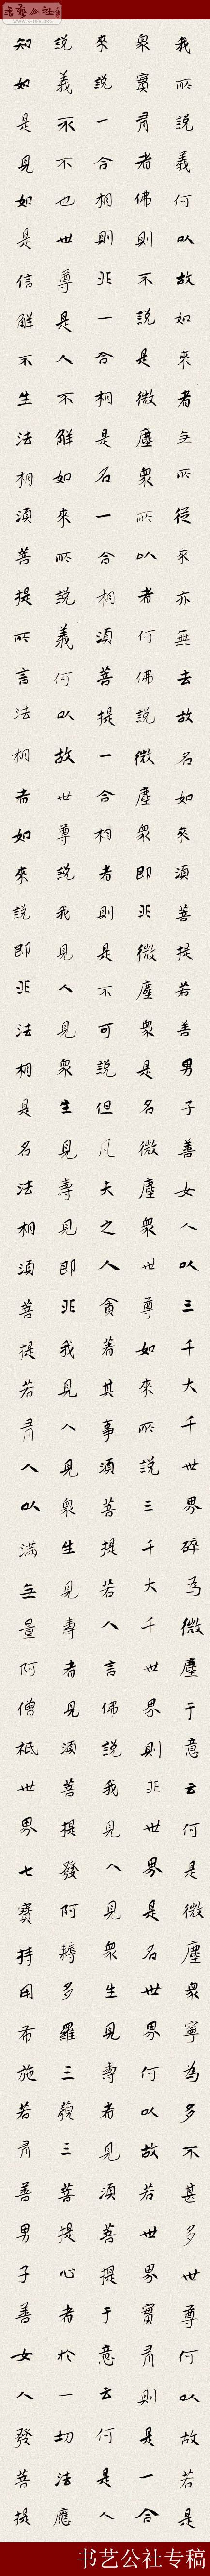 书艺公社
我所說義何以故如來者无所從來亦無去故名如來須菩提若善男子善女人以三千大千世界碎為微塵于意云何是微塵衆寧為多不甚多世尊何以故若是
衆實有者佛則不說是微塵衆所以者何佛說微塵衆即非微塵衆是名微塵衆世尊如來所說三千大千世界則非世界是名世界何以故若世界實有則是一合
來說一合相則非一合相是名一合相須菩提一合相者則是不可說但凡夫之人貪著其事須菩提若人言佛說我見人見衆生見壽者見須菩提于意云何是人
說義不不也世尊是人不解如來所說義何以故世尊說我見人見衆生見壽見即非我見人見衆生見壽者見須菩提發阿耨多羅三藐三菩提心者於一切法應
知如是見如是信解不生法相須菩提所言法相者如來說即非法相是名法相須菩提若有人以滿无量阿僧祇世界七寶持用布施若有善男子善女人發菩提
书艺公社专稿